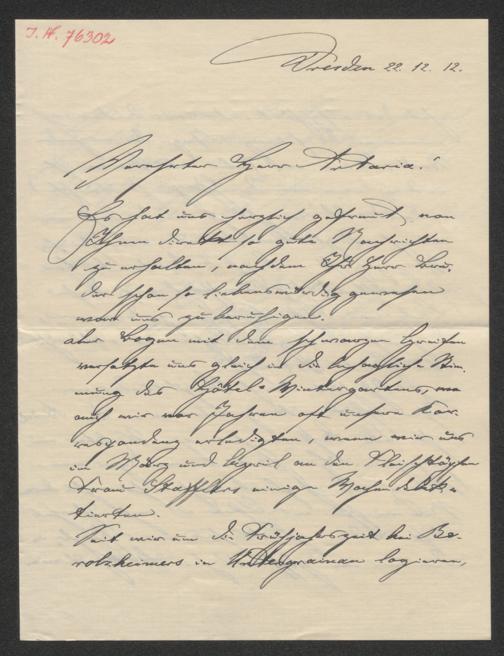 J. N. 76302
Dresden 22. 12. 12.
Verehrter Herr Artaria!
Es hat uns herzlich gefreut, von
Ihnen direkt so gute Nachrichten
zu erhalten, nachdem Ihr Herr Bru-
der schon so liebenswürdig gewesen
war uns zu beruhigen.
Der Bogen mit dem schwarzen Greifen
versetzte uns gleich in die behagliche Stim-
mung des Hôtel-Wintergartens, wo
auch wir vor Jahren oft unsere Kor-
respondenz erledigten, wenn wir uns
im März und April an den Fleischtöpfen
Frau Stafflers einige Wochen delek-
tierten.
Seit wir um die Frühjahrszeit bei Be-
rolzheimers in Untergrainau logieren,